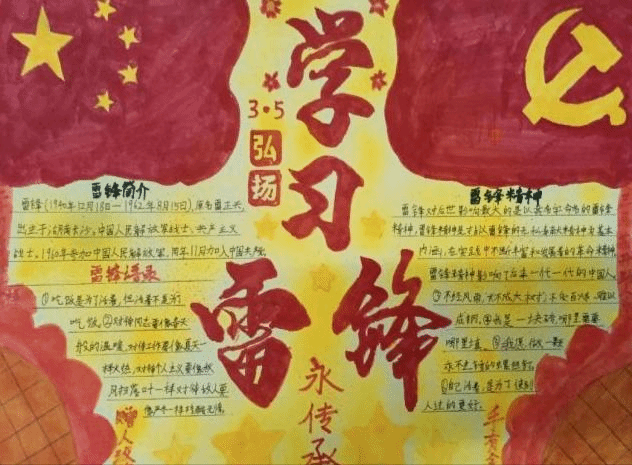 学习
雷锋
3·5
弘扬
永传承
雷锋简介
雷锋(1940年12月18日—1962年8月15日),原名雷正兴,
出生于湖南长沙,中国人民解放军战士、共产主义
战士。1960年参加中国人民解放军,同年11月加入中国共产党
雷锋语录
①吃饭是为了活着,但活着不是为了
吃饭。②对待同志要像春天
般的温暖,对待工作要像夏天一
样火热,对待个人主义要像秋
风扫落叶一样,对待敌人要
像严冬一样残酷无情。
赠人玫
雷锋精神
雷锋对后世影响最大的是以其名字命名的雷锋
精神,雷锋精神是指以雷锋的无私奉献精神为基本
内涵,在实践中不断丰富和发展着的革命精神
雷锋精神影响了后来一代一代的中国人。
③不经风雨,长不成大树;不受百炼,难以
成钢。④我是一块砖,哪里需要
哪里填。⑤我愿做一颗
永不生锈的螺丝钉。
自己活着,是为了使别
人过的更好。
手有余